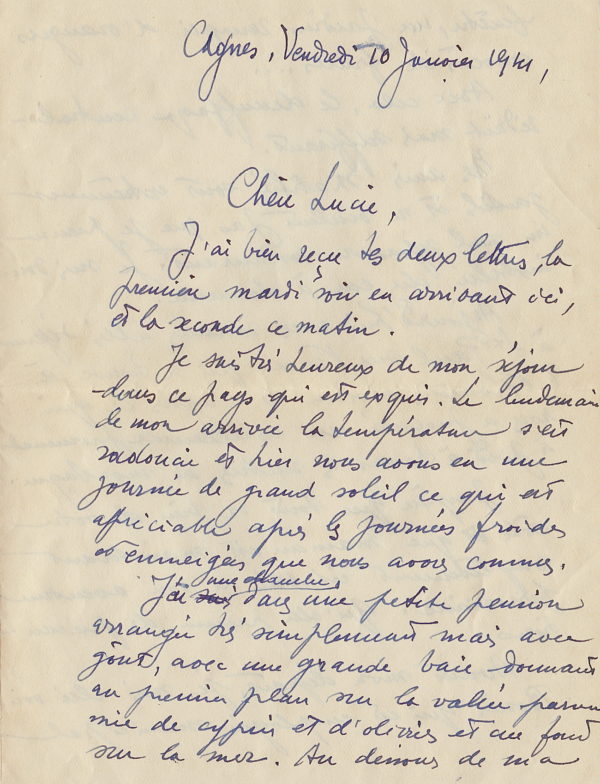 Cagnes, Vendredi 10 Janvier 1941,
Chère Lucie,
J'ai bien reçu tes deux lettres, la
première mardi soir en arrivant ici,
et la seconde ce matin.
Je suis très heureux de mon séjour
dans ce pays qui est exquis. Le lendemain
de mon arrivée la température s'est
radoucie et hier nous avons eu une
journée de grand soleil ce qui est
appréciable après les journées froides
et enneigées que nous avons connues.
J'ai une chambre dans une petite pension
arrangée très simplement mais avec
goût, avec une grande baie donnant
au premier plan sur la vallée parse-
mée de cyprès et d'oliviers et au fond
sur la mer. Au dessous de ma